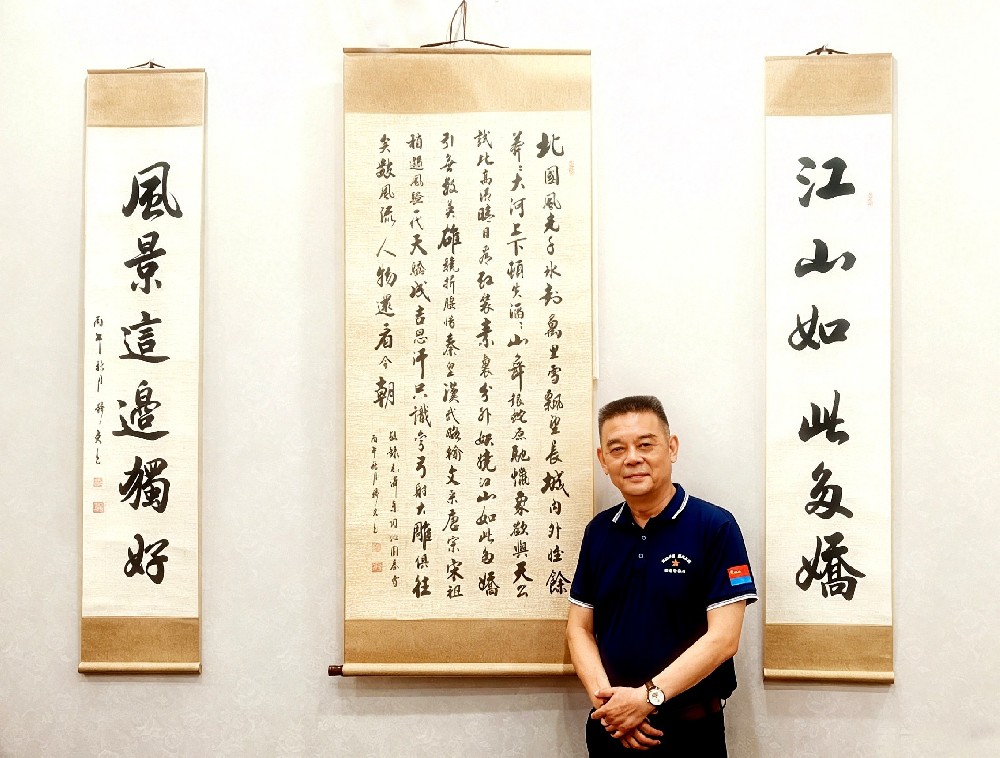 江山如此多嬌
北國風光千冰封萬里雪飄望長城內外惟餘
莽〻大河上下頓失滔〻山舞銀蛇原馳蠟象欲與天公
試比高須晴日看紅裝素裹分外妖嬈江山如此多嬌
引無數英雄競折腰惜秦皇漢武略輸文采唐宗宋祖
稍遜風騷一代天驕成吉思汗只識彎弓射大雕俱往
矣數風流人物還看今朝
敬錄毛澤東詞沁園春雪
丙午秋月
風景這邊獨好
丙午秋月